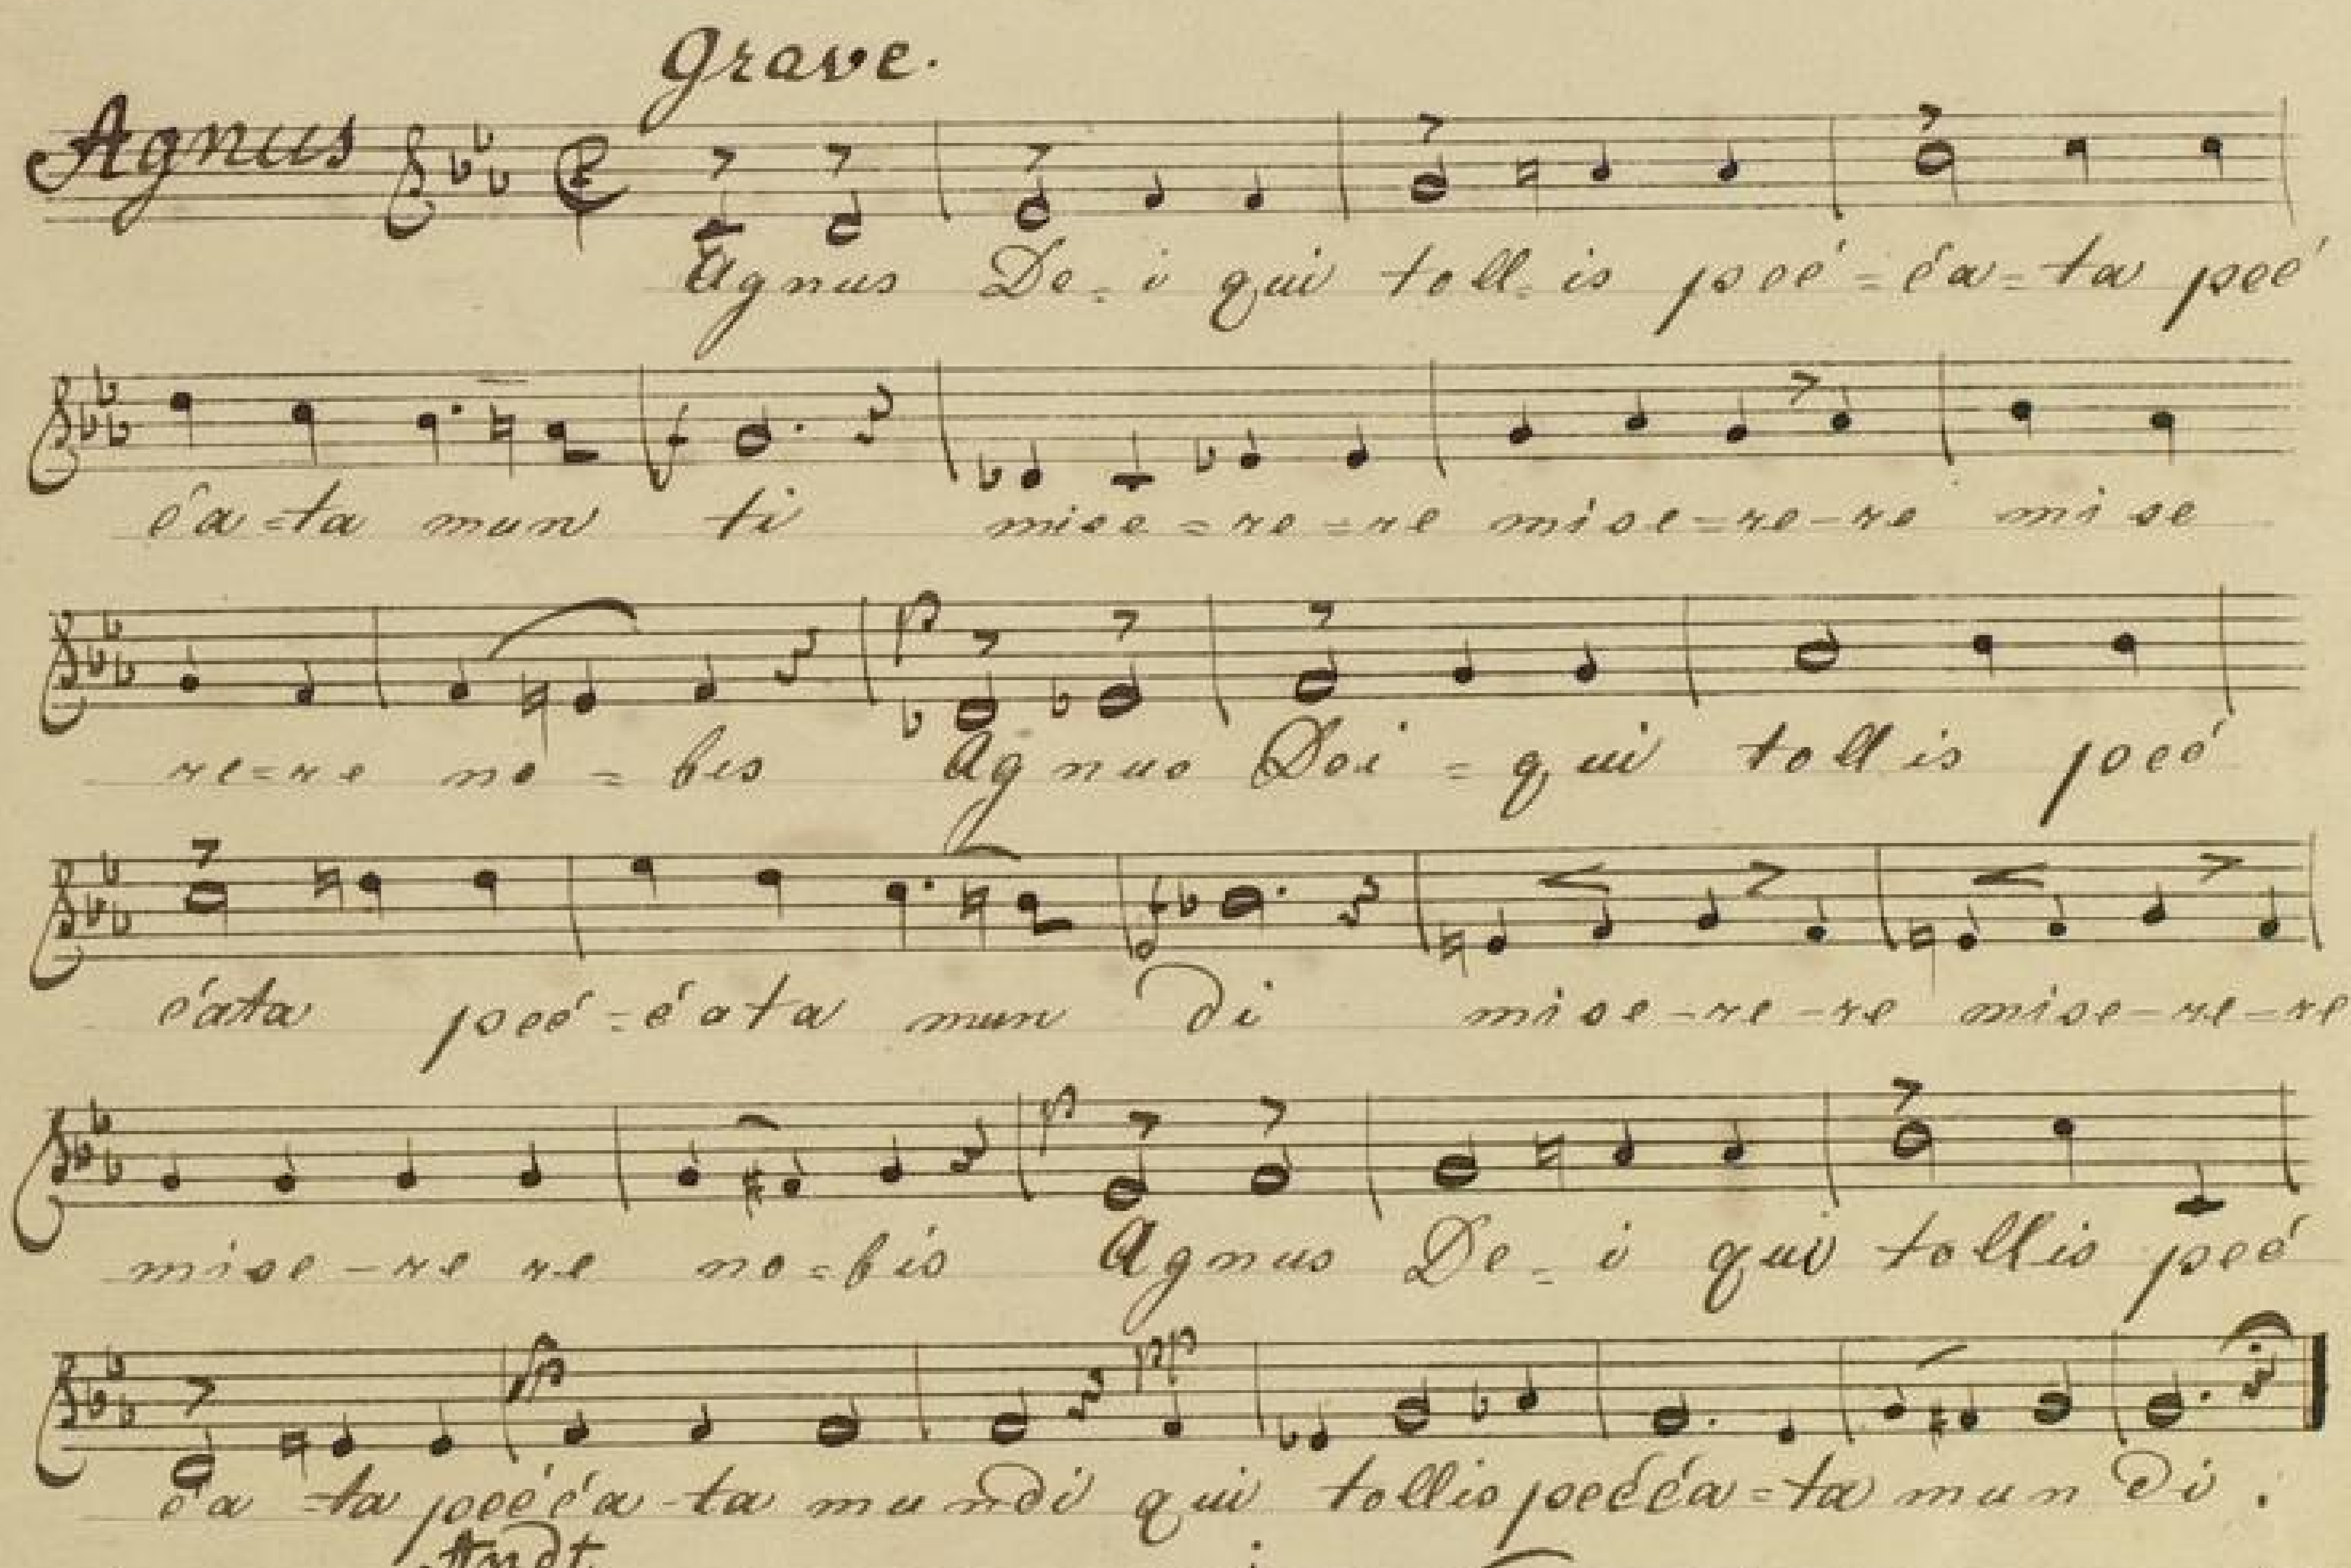 Grave.
Agnus
Agnus De-i qui toll-is peć=ća=ta peć
ća=ta mun ti mise=re=re mise=re-re mi se
re=re no=bis Agnus Dei=qui tollis peć
ćata peć=ćata mun di mise-re-re mise-re-re
mise-re re no=bis Agnus De-i qui tollis peć
ća=ta pećća-ta mundi qui tollis pećća=ta mun di.
Andt.